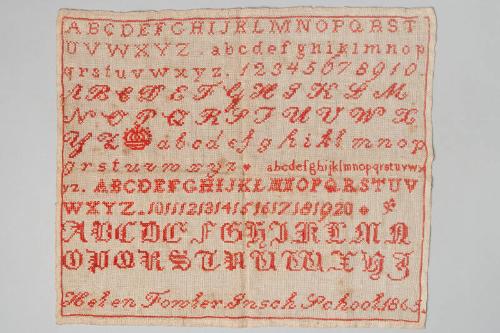 ABCDEFGHIJKLMNOPQRST
UVWXYZ. abcdefghijklmnop
qrstuvwxyz. 12345678910
ABCDEFGHIJKLM
NOPQRSTUVWX
YZ abcdefghiklmnop
qrstuvwxyz abcdefghijklmnopqrstuvwx
yz. ABCDEFGHIJKLMNOPQRSTUV
WXYZ. 1011121314151617181920
ABCDEFGHIKLMN
OPQRSTUVWXYZ
Helen Fowler. Insch School. 1865